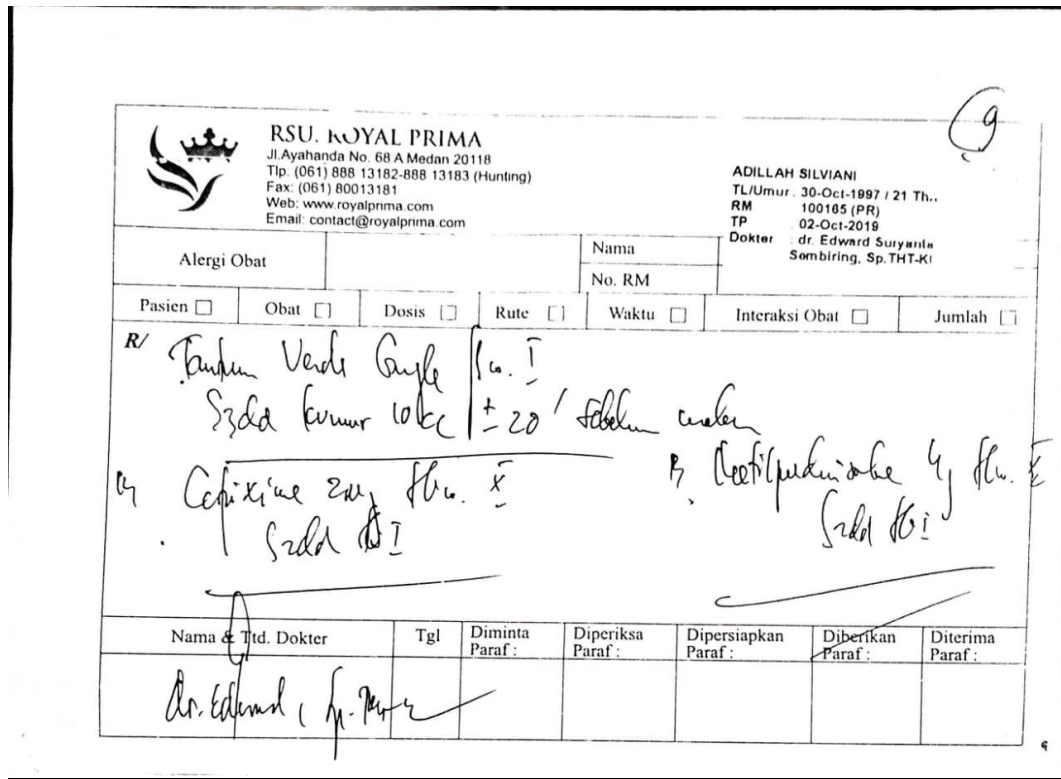 9
RSU. ROYAL PRIMA
Jl.Ayahanda No. 68 A Medan 20118
Tlp. (061) 888 13182-888 13183 (Hunting)
Fax: (061) 80013181
Web: www.royalprima.com
Email: contact@royalprima.com
ADILLAH SILVIANI
TL/Umur : 30-Oct-1997 / 21 Th.,
RM 100165 (PR)
TP : 02-Oct-2019
Dokter : dr. Edward Suryanta
Sembiring, Sp.THT-Kl
Alergi Obat
Nama
No. RM
Pasien Obat Dosis Rute Waktu Interaksi Obat Jumlah
R/ Tantum Verde Gargle I
S3dd kumur 10 cc ± 20' sebelum makan
Cefixime X
S2dd I
Metilprednisolone 4 X
S2dd I
Nama & Ttd. Dokter Tgl Diminta Paraf : Diperiksa Paraf : Dipersiapkan Paraf : Diberikan Paraf : Diterima Paraf :
dr. Edward,